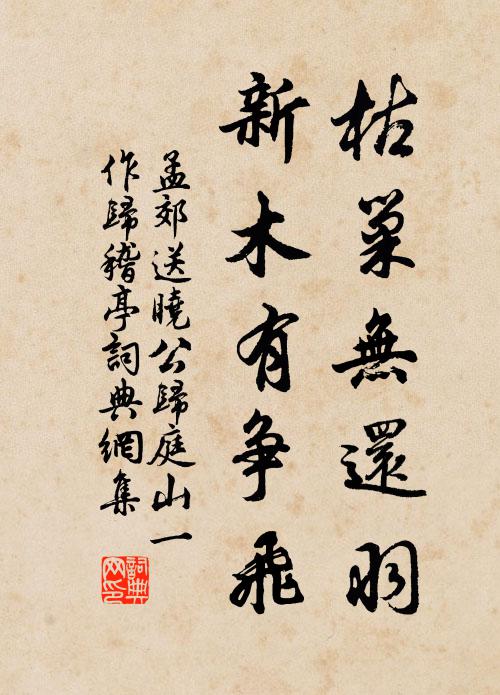 枯巢無還羽
新木有争飛
孟郊送曉公歸庭山一
作歸稽亭詞典網集
詞典
网印